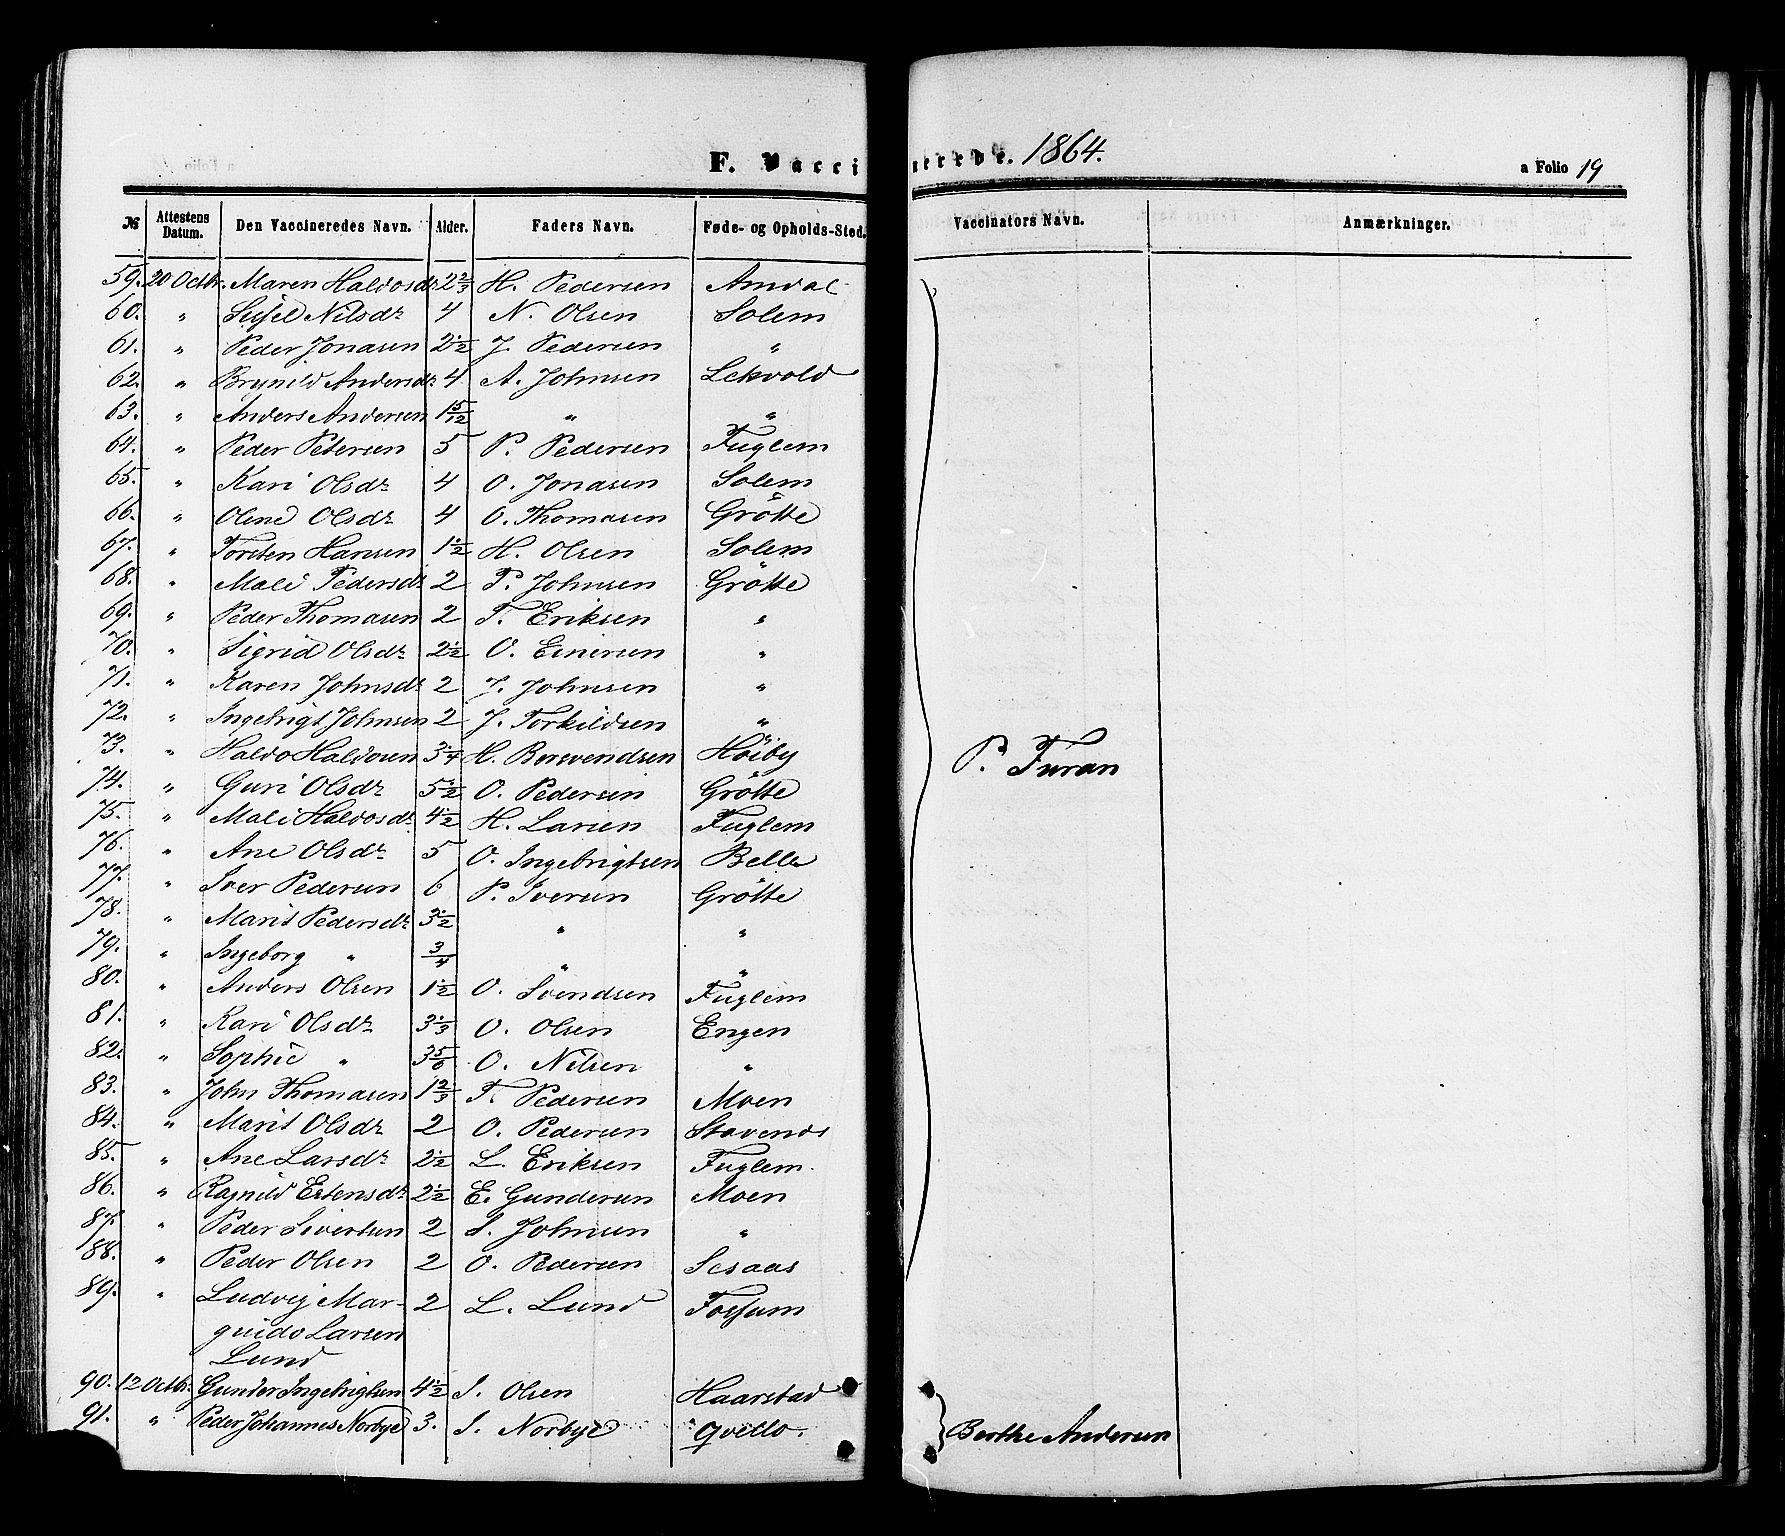 F. Vaccinerede. 1864.
a Folio 19
№ Attestens Datum. Den Vaccineredes Navn. Alder. Faders Navn. Føde- og Opholds-Sted. Vaccinators Navn. Anmærkninger.
59. 20 Octbr. Maren Haldosdr 2 2/3 H. Pedersen Amdal
60. " Sisel Nilsdr 4 N. Olsen Solem
61. " Peder Jonasen 2 1/2 J. Pedersen "
62. " Brynild Andersdr 4 A. Johnsen Lekvold
63. " Anders Andersen 1 5/12 " "
64. " Peder Petersen 5 P. Pedersen Fuglem
65. " Kari Olsdr 4 O. Jonasen Solem
66. " Olene Olsdr 4 O. Thomasen Grötte
67. " Torsten Hansen 1 1/2 H. Olsen Solem
68. " Mali Pedersdr 2 P. Johnsen Grötte
69. " Peder Thomasen 2 T. Eriksen "
70. " Sigrid Olsdr 2 1/2 O. Einersen "
71. " Karen Johnsdr 2 J. Johnsen "
72. " Ingebrigt Johnsen 2 J. Torkildsen "
73. " Haldo Haldosen 3 1/4 H. Bersvendsen Höiby P. Furan
74. " Guri Olsdr 5 1/2 O. Pedersen Grötte
75. " Mali Haldosdr 4 1/2 H. Larsen Fuglem
76. " Ane Olsdr 5 O. Ingebrigtsen Belle
77. " Iver Pedersen 6 P. Iversen Grötte
78. " Marit Pedersdr 3 1/2 " "
79. " Ingeborg " 3/4 " "
80. " Anders Olsen 1 1/2 O. Svendsen Fuglem
81. " Kari Olsdr 3 1/3 O. Olsen Engen
82. " Sophie " 3 5/6 O. Nilsen "
83. " John Thomasen 1 2/3 T. Pedersen Moen
84. " Marit Olsdr 2 O. Pedersen Stavends
85. " Ane Larsdr 2 1/2 L. Eriksen Fuglem.
86. " Ragnild Estensdr 2 1/2 E. Gundersen Moen
87. " Peder Sivertsen 2 S. Johnsen "
88. " Peder Olsen 2 O. Pedersen Sesaas
89. " Ludvig Mar- 2 L. Lund Fossum
guido Larsen
Lund
90. 12 Octbr. Gunder Ingebrigtsen 4 1/2 I. Olsen Haarstad
91. " Peder Johannes Norbye 3. I. Norbye Qvello. Berthe Andersen